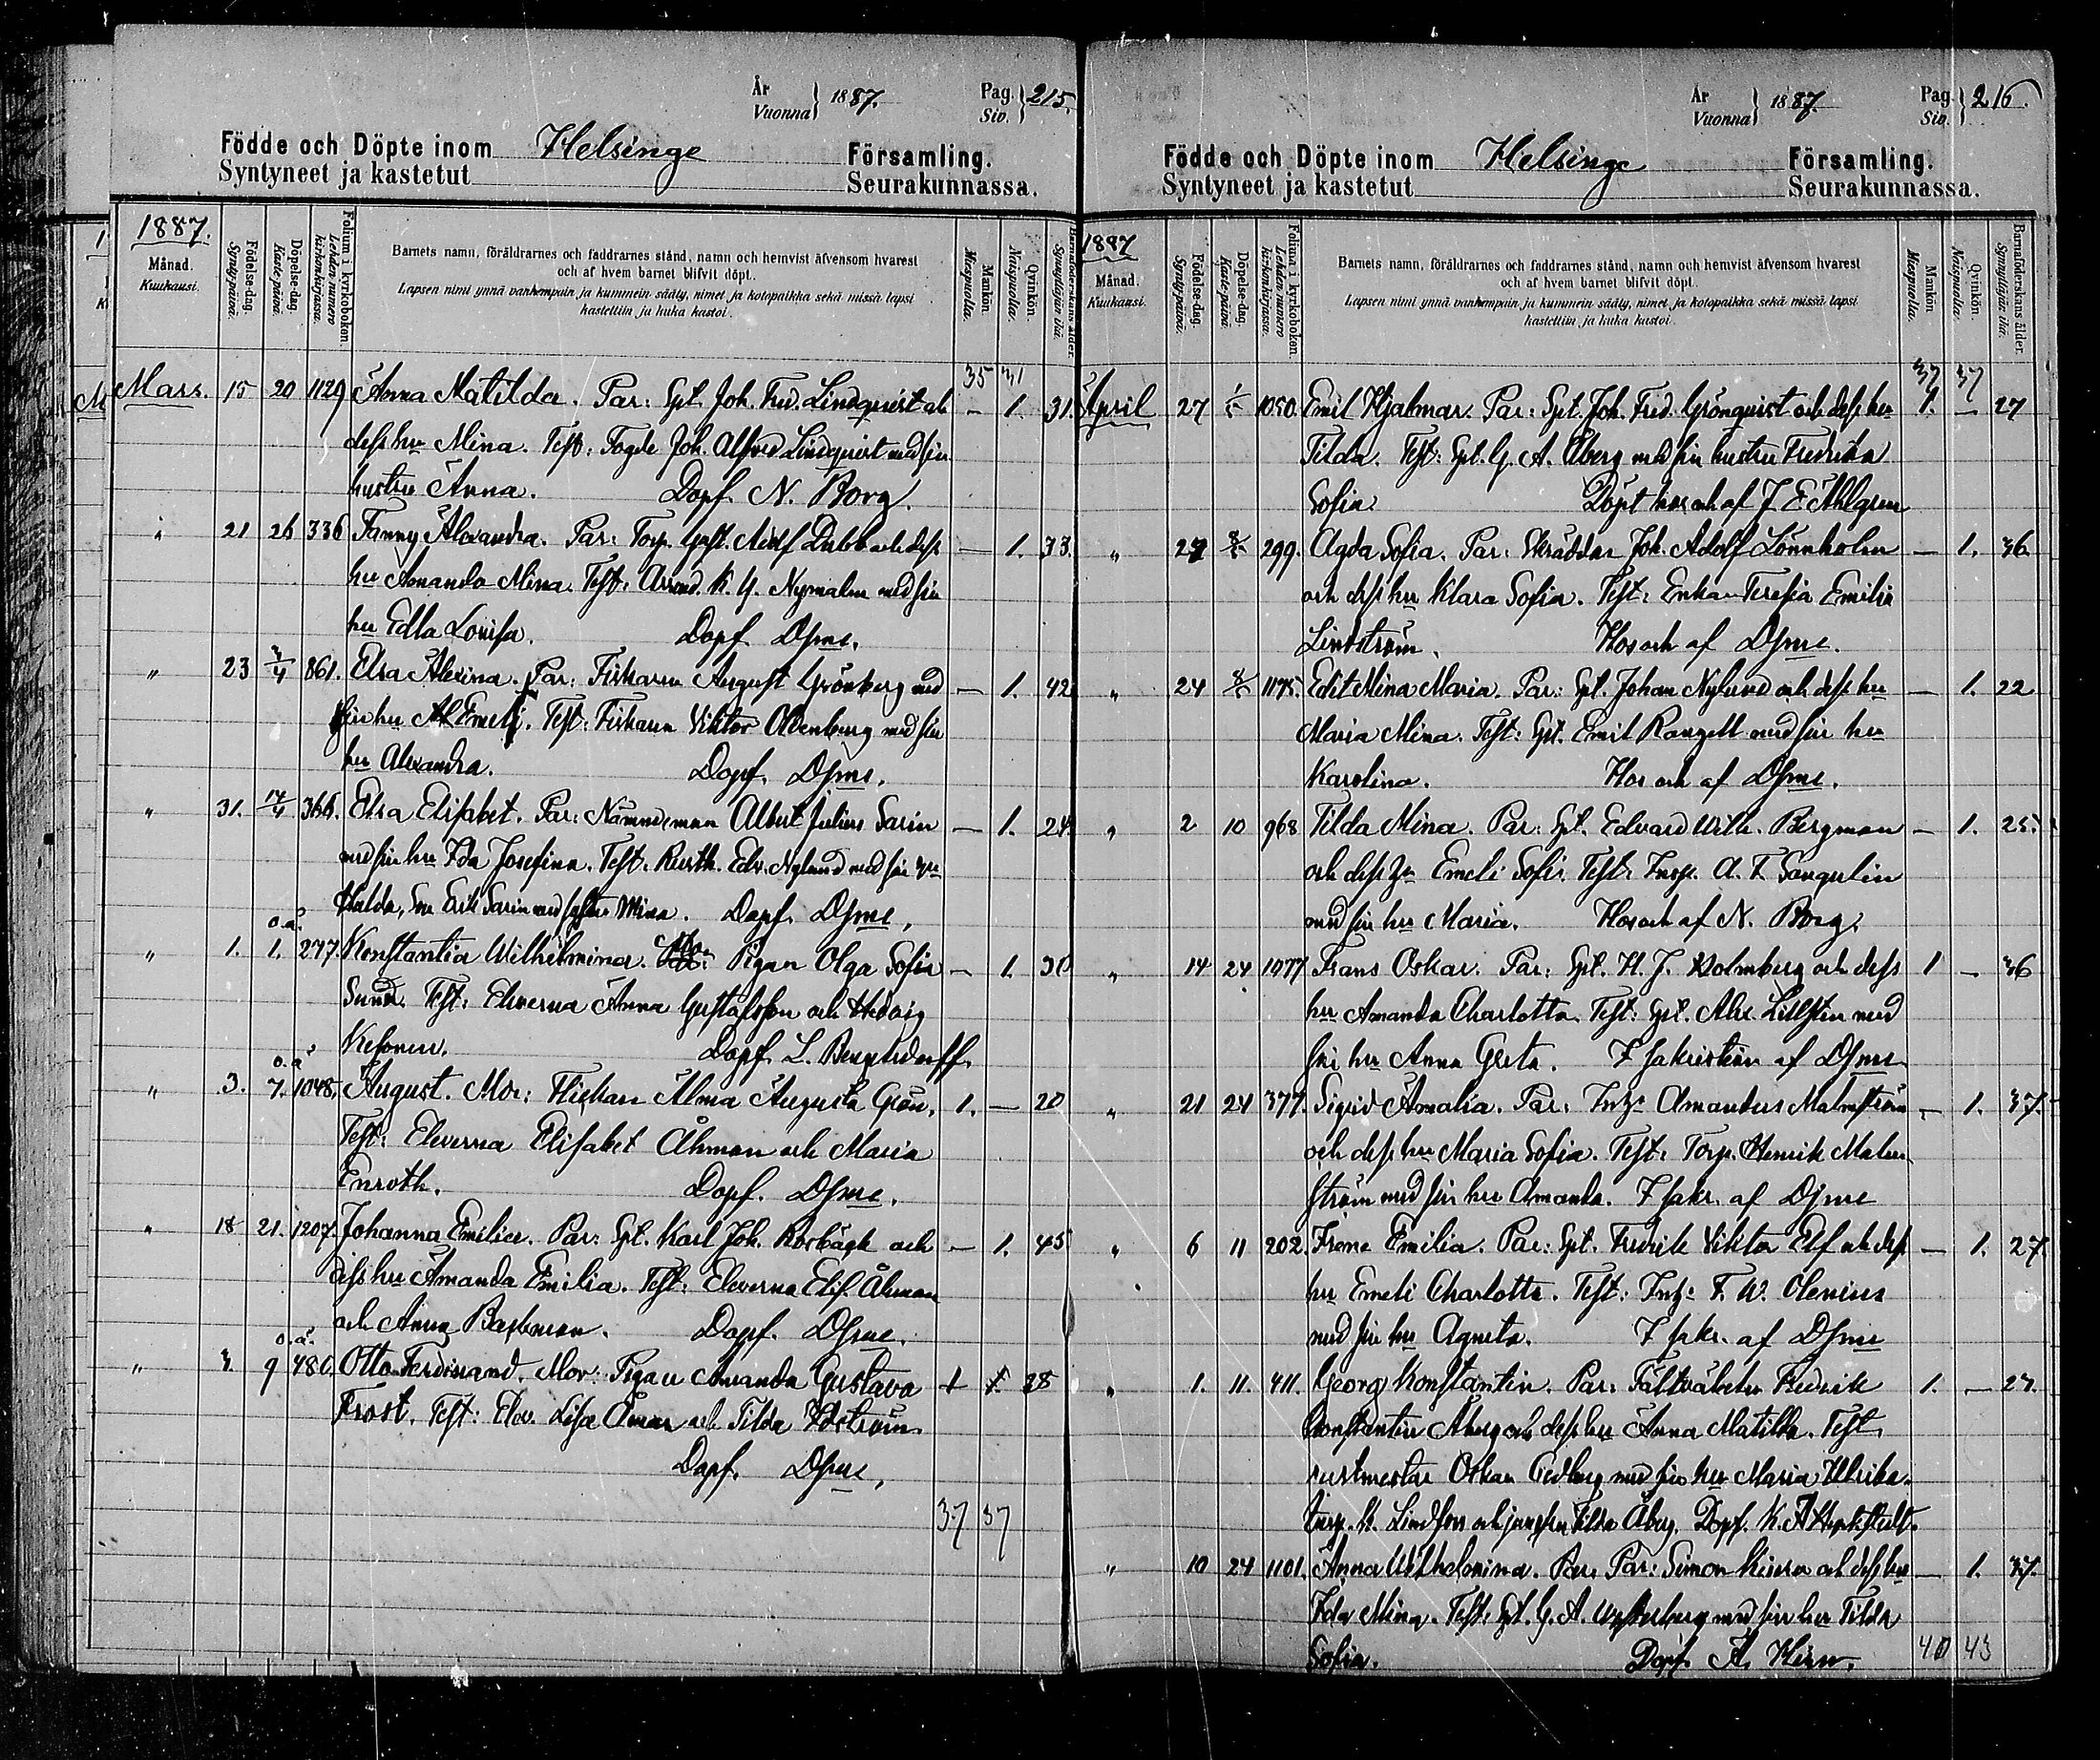 År Vuonna } 1887. Pag. Siv. } 215.
Födde och Döpte inom Helsinge Församling.
Syntyneet ja kastetut Seurakunnassa.
1887.
Månad. Kuukausi.
Födelse-dag. Syntypäivä.
Döpelse-dag. Kaste-päivä.
Folium i kyrkoboken. Lehden numero kirkonkirjassa.
Barnets namn, föräldrarnes och faddrarnes stånd, namn och hemvist äfvensom hvarest
och af hvem barnet blifvit döpt.
Lapsen nimi ynnä vanhempain ja kummein sääty, nimet ja kotopaikka sekä missä lapsi
kastettiin ja kuka kastoi.
Mankön. Miespuolia.
Qvinkön. Naispuolia.
Barnaföderskans ålder. Synnyttäjän ikä.
35 31
Mars. 15 20 1129 Anna Matilda. Par: Spt. Joh. Fred. Lindqvist och — 1. 31.
dess hu Mina. Test: Fogde Joh. Alfred Lindqvist med sin
hustru Anna. Dopf. N. Borg.
" 21 26 336 Fanny Alexandra. Par: Torp. Gust. Adolf Dubb och dess — 1. 33.
hu Amanda Mina. Test: Arrend. K. G. Nymalm med sin
hu Edla Lovisa. Dopf. Dsme.
" 23 3/4 861. Elsa Alexina. Par: Fiskaren August Grönberg med — 1. 42
sin hu Emeli. Test: Fiskaren Viktor Altenberg med sin
hu Alexandra. Dopf. Dsme.
" 31. 17/4 366. Elsa Elisabet. Par: Nämndeman Albert Julius Sarin — 1. 24
med sin hu Ida Josefina. Test: Rusth. Edv. Nylund med sin hu
Hulda, Son Erik Sarin med syster Mina. Dopf. Dsme.
o.ä.
" 1. 1. 277. Konstantia Wilhelmina. Mo: Pigan Olga Sofia — 1. 30
Sund. Test: Eleverna Anna Gustafsson och Hedvig
Kesonen. Dopf. L. Bengelsdorff.
o.ä
" 3. 7. 1048. August. Mor: Flickan Alma Augusta Grön. 1. — 20
Test: Eleverna Elisabet Åhman och Maria
Enroth. Dopf. Dsme.
" 18 21. 1207. Johanna Emilia. Par: Spt. Karl Joh. Rosbäck och — 1. 45
dess hu Amanda Emilia. Test: Eleverna Elis. Åhman
och Anna Backman. Dopf. Dsme.
o.ä.
" 3. 9 486. Otto Ferdinand. Mor: Pigan Amanda Gustava 1 1. 28
Frost. Test: Elev. Lisa Åman och Tilda Idström
Dopf. Dsme.
37 37
År Vuonna } 1887. Pag. Siv. } 216.
Födde och Döpte inom Helsinge Församling.
Syntyneet ja kastetut Seurakunnassa.
1887
Månad. Kuukausi.
Födelse-dag. Synty-päivä.
Döpelse-dag. Kaste-päivä.
Folium i kyrkoboken. Lehden numero kirkonkirjassa.
Barnets namn, föräldrarnes och faddrarnes stånd, namn och hemvist äfvensom hvarest
och af hvem barnet blifvit döpt.
Lapsen nimi ynnä vanhempain ja kummein sääty, nimet ja kotopaikka sekä missä lapsi
kastettiin ja kuka kastoi.
Mankön. Miespuolia.
Qvinkön. Naispuolia.
Barnaföderskans ålder. Synnyttäjän ikä.
37 37
April 27 1/5 1050. Emil Hjalmar. Par: Spt. Joh. Fred. Grönqvist och dess hu 1. — 27
Tilda. Test: Spt. G. A. Åberg med sin hustru Fredrika
Sofia. Döpt hos och af J. E. Ahlgren
" 27 8/5 299. Agda Sofia. Par: Skräddar Joh. Adolf Lönnholm — 1. 36
och dess hu Klara Sofia. Test: Enkan Teresia Emilia
Lindström. Hos och af Dsme.
" 24 8/5 1175. Edit Mina Maria. Par: Spt. Johan Nylund och dess hu — 1. 22
Maria Mina. Test: Spt. Emil Rangell med sin hu
Karolina. Hos och af Dsme.
" 2 10 968 Tilda Mina. Par: Spt. Edvard Wilh. Bergman — 1. 25.
och dess hu Emeli Sofi. Test: Insp. A. F. Sangulin
med sin hu Maria. Hos och af N. Borg.
" 14 24 1077 Frans Oskar. Par: Spt. H. J. Holmberg och dess 1 — 36
hu Amanda Charlotta. Test: Spt. Alex. Lillsten med
sin hu Anna Greta. I sakristian af Dsme
" 21 24 377. Sigrid Amalia. Par: Inhy: Amandus Malmström — 1. 37.
och dess hu Maria Sofia. Test: Torp. Henrik Malm-
ström med sin hu Amanda. I sakr. af Dsme
" 6 11 202. Irene Emilia. Par: Spt. Fredrik Viktor Elf och dess — 1. 27
hu Emeli Charlotta. Test: Inhy: F. W. Olenius
med sin hu Agneta. I sakr. af Dsme
" 1. 11. 411. Georg Konstantin. Par: Fältväbeln Fredrik 1. — 27.
Konstantin Åberg och dess hu Anna Matilda. Test:
rustmestar Oskar Cedberg med sin hu Maria Ulrika.
K. Lindfors och jungfru Tilda Åberg. Dopf. K. A.
" 10 24 1101. Anna Wilhelmina. Par: Simon och dess hu — 1. 37.
Ida Mina. Test: Spt. G. A. Westerberg med sin hu Tilda
Sofia. Dopf. A. Hirn.
40 43